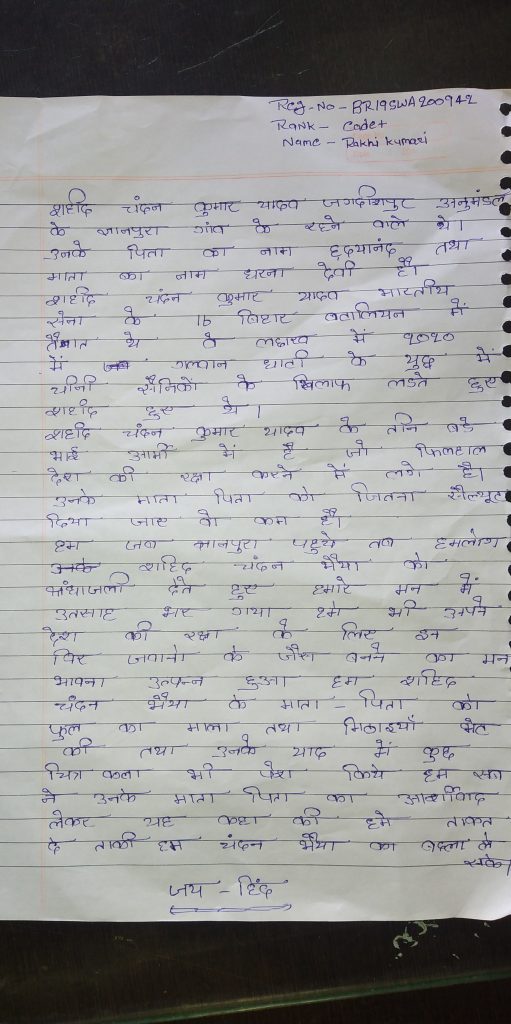 Reg-No - BR19SWA200942
Rank - Cadet
Name - Rakhi kumari
शहीद चंदन कुमार यादव जगदीशपुर अनुमंडल
के ज्ञानपुरा गांव के रहने वाले थे।
उनके पिता का नाम हृदयानंद तथा
माता का नाम धरना देवी है।
शहीद चंदन कुमार यादव भारतीय
सेना के 16 बिहार बतालियन में
तैनात थे वे लद्दाख में २०२०
में गलवान घाटी के युद्ध में
चीनी सैनिकों के खिलाफ लडते हुए
शहीद हुए थे।
शहीद चंदन कुमार यादव के तीन बड़े
भाई आर्मी में है जो फिलहाल
देश की रक्षा करने में लगे है।
उनके माता पिता को जितना सैल्यूट
दिया जाए वो कम है।
हम जब ज्ञानपुरा पहुचे तब हमलोग
शहिद चंदन भैया को
श्रंधाजली देते हुए हमारे मन में
उतसाह भर गया हमे भी अपने
देश की रक्षा के लिए इन
विर जवानो के जैसा बनने का मन
भावना उत्पन्न हुआ हम शहिद
चंदन भैया के माता - पिता को
फुल का माला तथा मिठाइयाँ भेट
की तथा उनके याद में कुछ
चित्र कला भी पेश किये हम सब
ने उनके माता पिता का आर्शीवाद
लेकर यह कहा की हमे ताकत
दे ताकी हम चंदन भैया का बदला ले
सके।
जय - हिंद